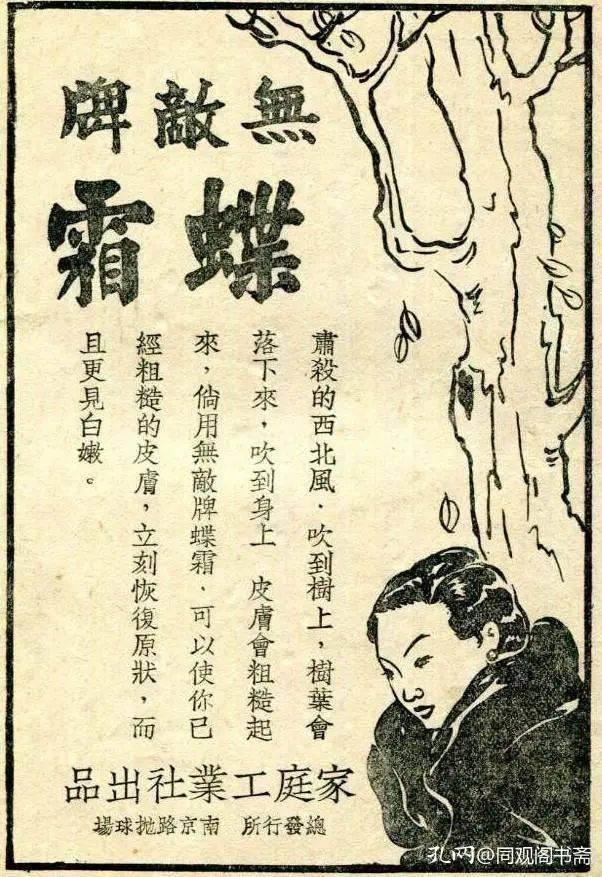 無敵牌
蝶霜
肅殺的西北風·吹到樹上，樹葉會
落下來，吹到身上 皮膚會粗糙起
來，倘用無敵牌蝶霜·可以使你已
經粗糙的皮膚，立刻恢復原狀，而
且更見白嫩。
家庭工業社出品
總發行所 南京路抛球場
孔网@同观阁书斋